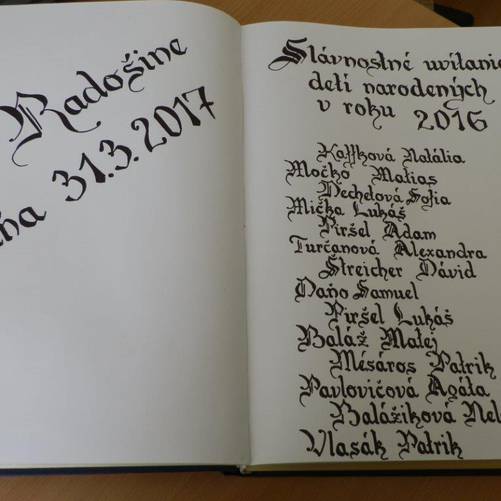 Radošine
31.3.2017
Slávnostné uvítanie
detí narodených
v roku 2016
Kaffková Natália
Močko Matias
Dechelová Sofia
Mička Lukáš
Piršel Adam
Turčanová Alexandra
Streicher Dávid
Daňo Samuel
Piršel Lukáš
Baláž Matej
Mésáros Patrik
Pavlovičová Agáta
Balážiková Nel
Vlasák Patrik